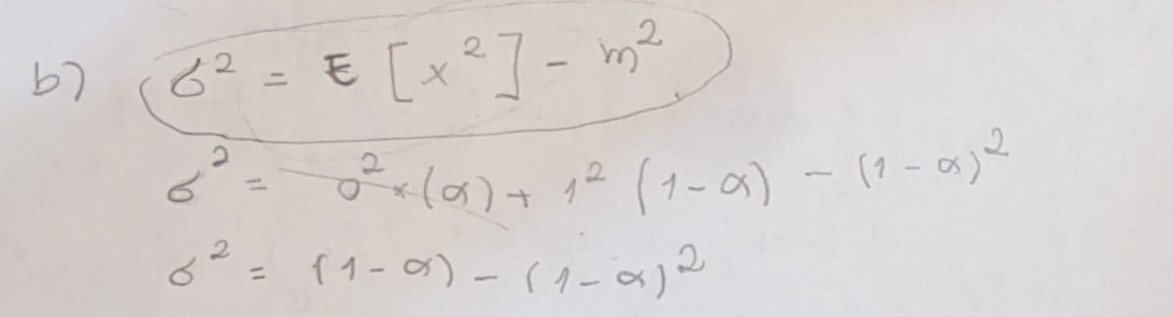 b) σ² = E [x²] - m²
σ² = 0² × (α) + 1² (1-α) - (1-α)²
σ² = (1-α) - (1-α)²